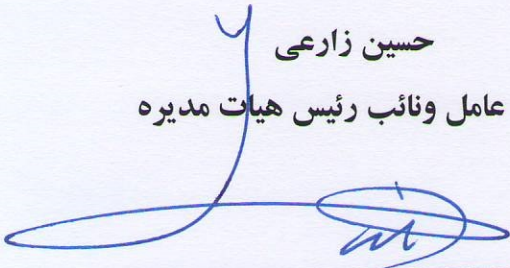 حسین زارعی
عامل ونائب رئیس هیات مدیره